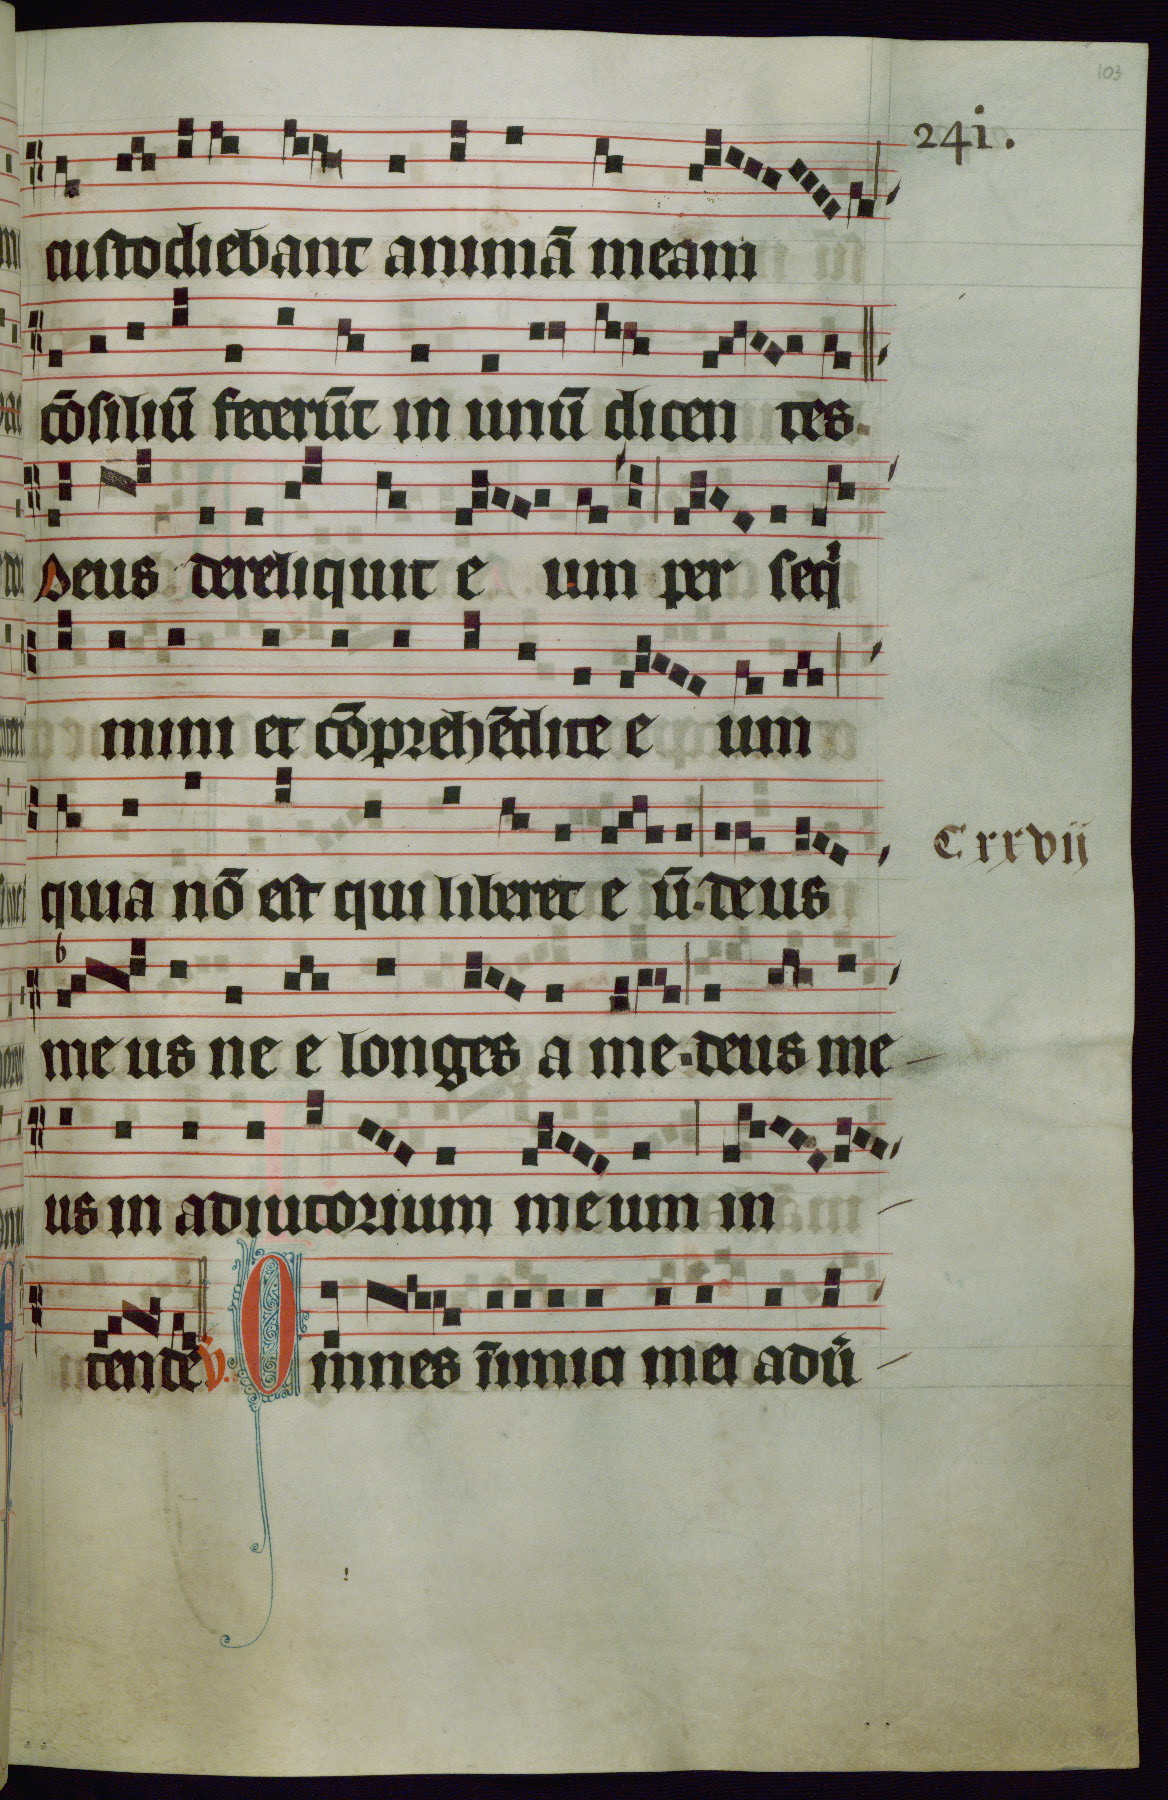 103
24i.
custodiebant animā meam
cōsiliū fecerūt in unū dicen tes.
Deus dereliquit e um per seq̓
mini et cōprehēdite e um
Cxxvii
quia nō est qui liberet e ū. deus
b
me us ne e longes a me. deus me
us in adiutorium me um in
tende v. Omnes īimici mei adū